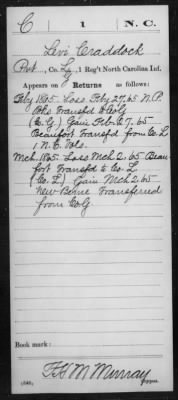 C | 1 | N.C.
Levi Craddock
Pvt, Co. L, 1 Reg't North Carolina Inf.
Appears on Returns as follows:
Feby 1865. Loss Feby 27, 65 N.P.
Transfd to Co G
(Co. G) Gain Feb 27, 65
Beaufort Transfd from Co L
1. N.C. Vols.
Mch. 1865. Loss Mch 2, 65 Beau-
fort Transfd to Co. L
(Co. L) Gain Mch 2, 65
New Berne Transferred
from Co G
Book mark:
F. H. M. Murray
(546) Copyist.